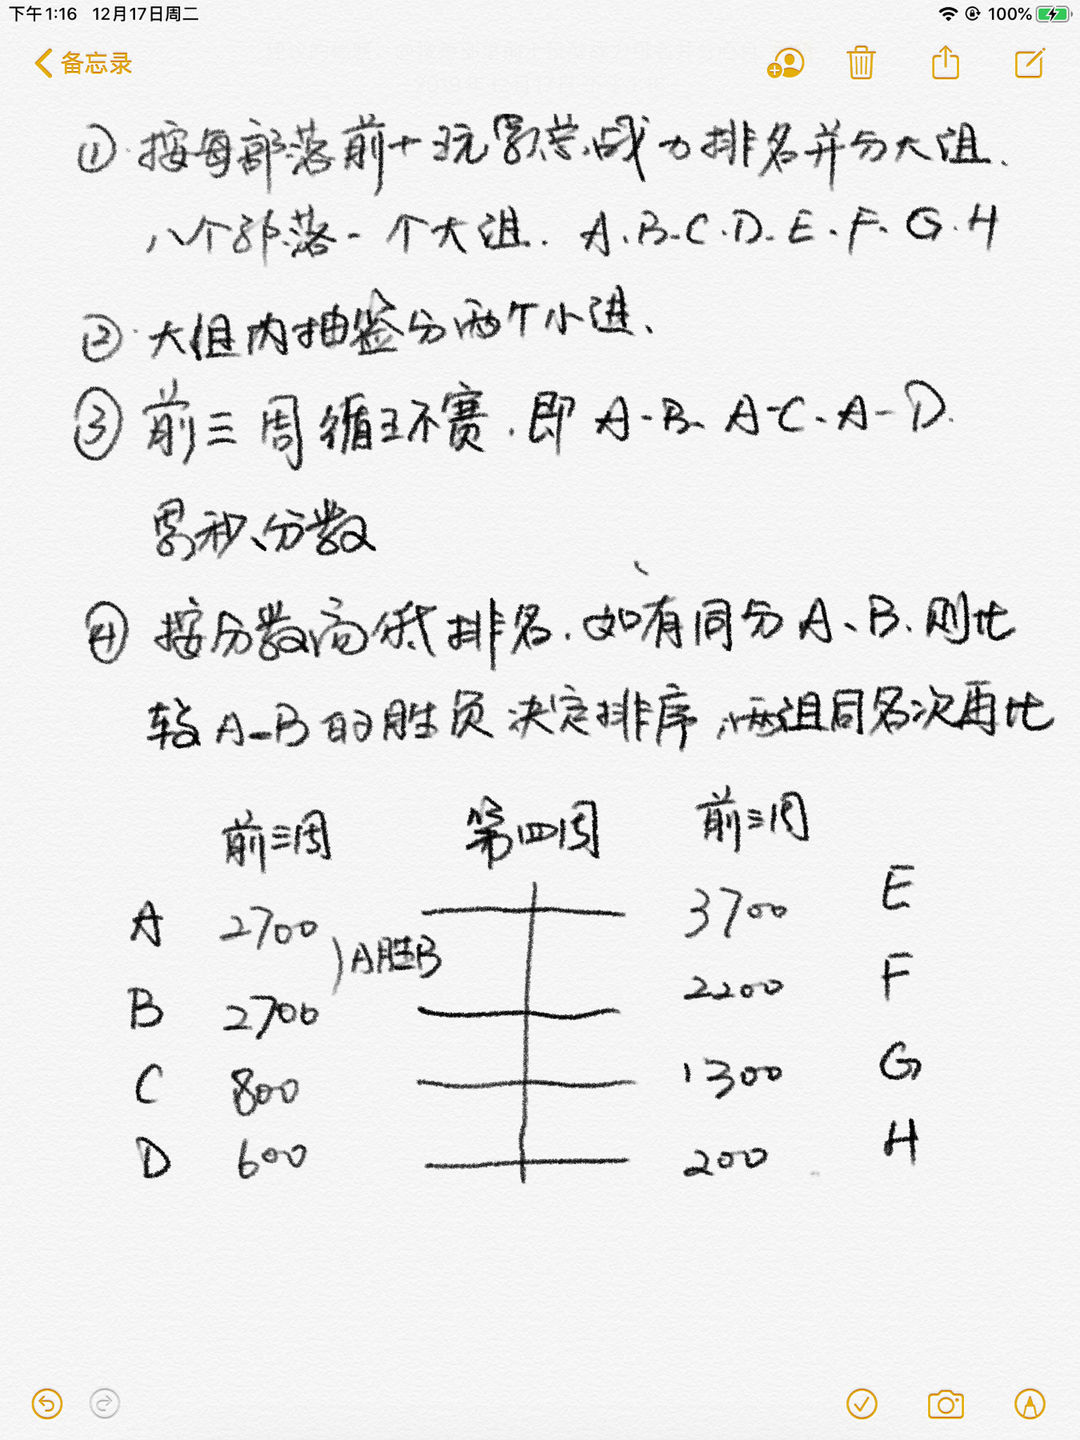 下午1:16 12月17日周二 100%
备忘录
① 按每部落前十玩家总战力排名并分大组.
八个部落一个大组. A.B.C.D.E.F.G.H
② 大组内抽签分两个小组、
③ 前三周循环赛.即 A-B、A-C、A-D.
累积分数
④ 按分数高低排名.如有同分A、B、则比
较A-B的胜负决定排序,两组同名次再比
前三周 第四周 前三周
A 2700 3700 E
A胜B
B 2700 2200 F
C 800 1300 G
D 600 200 H